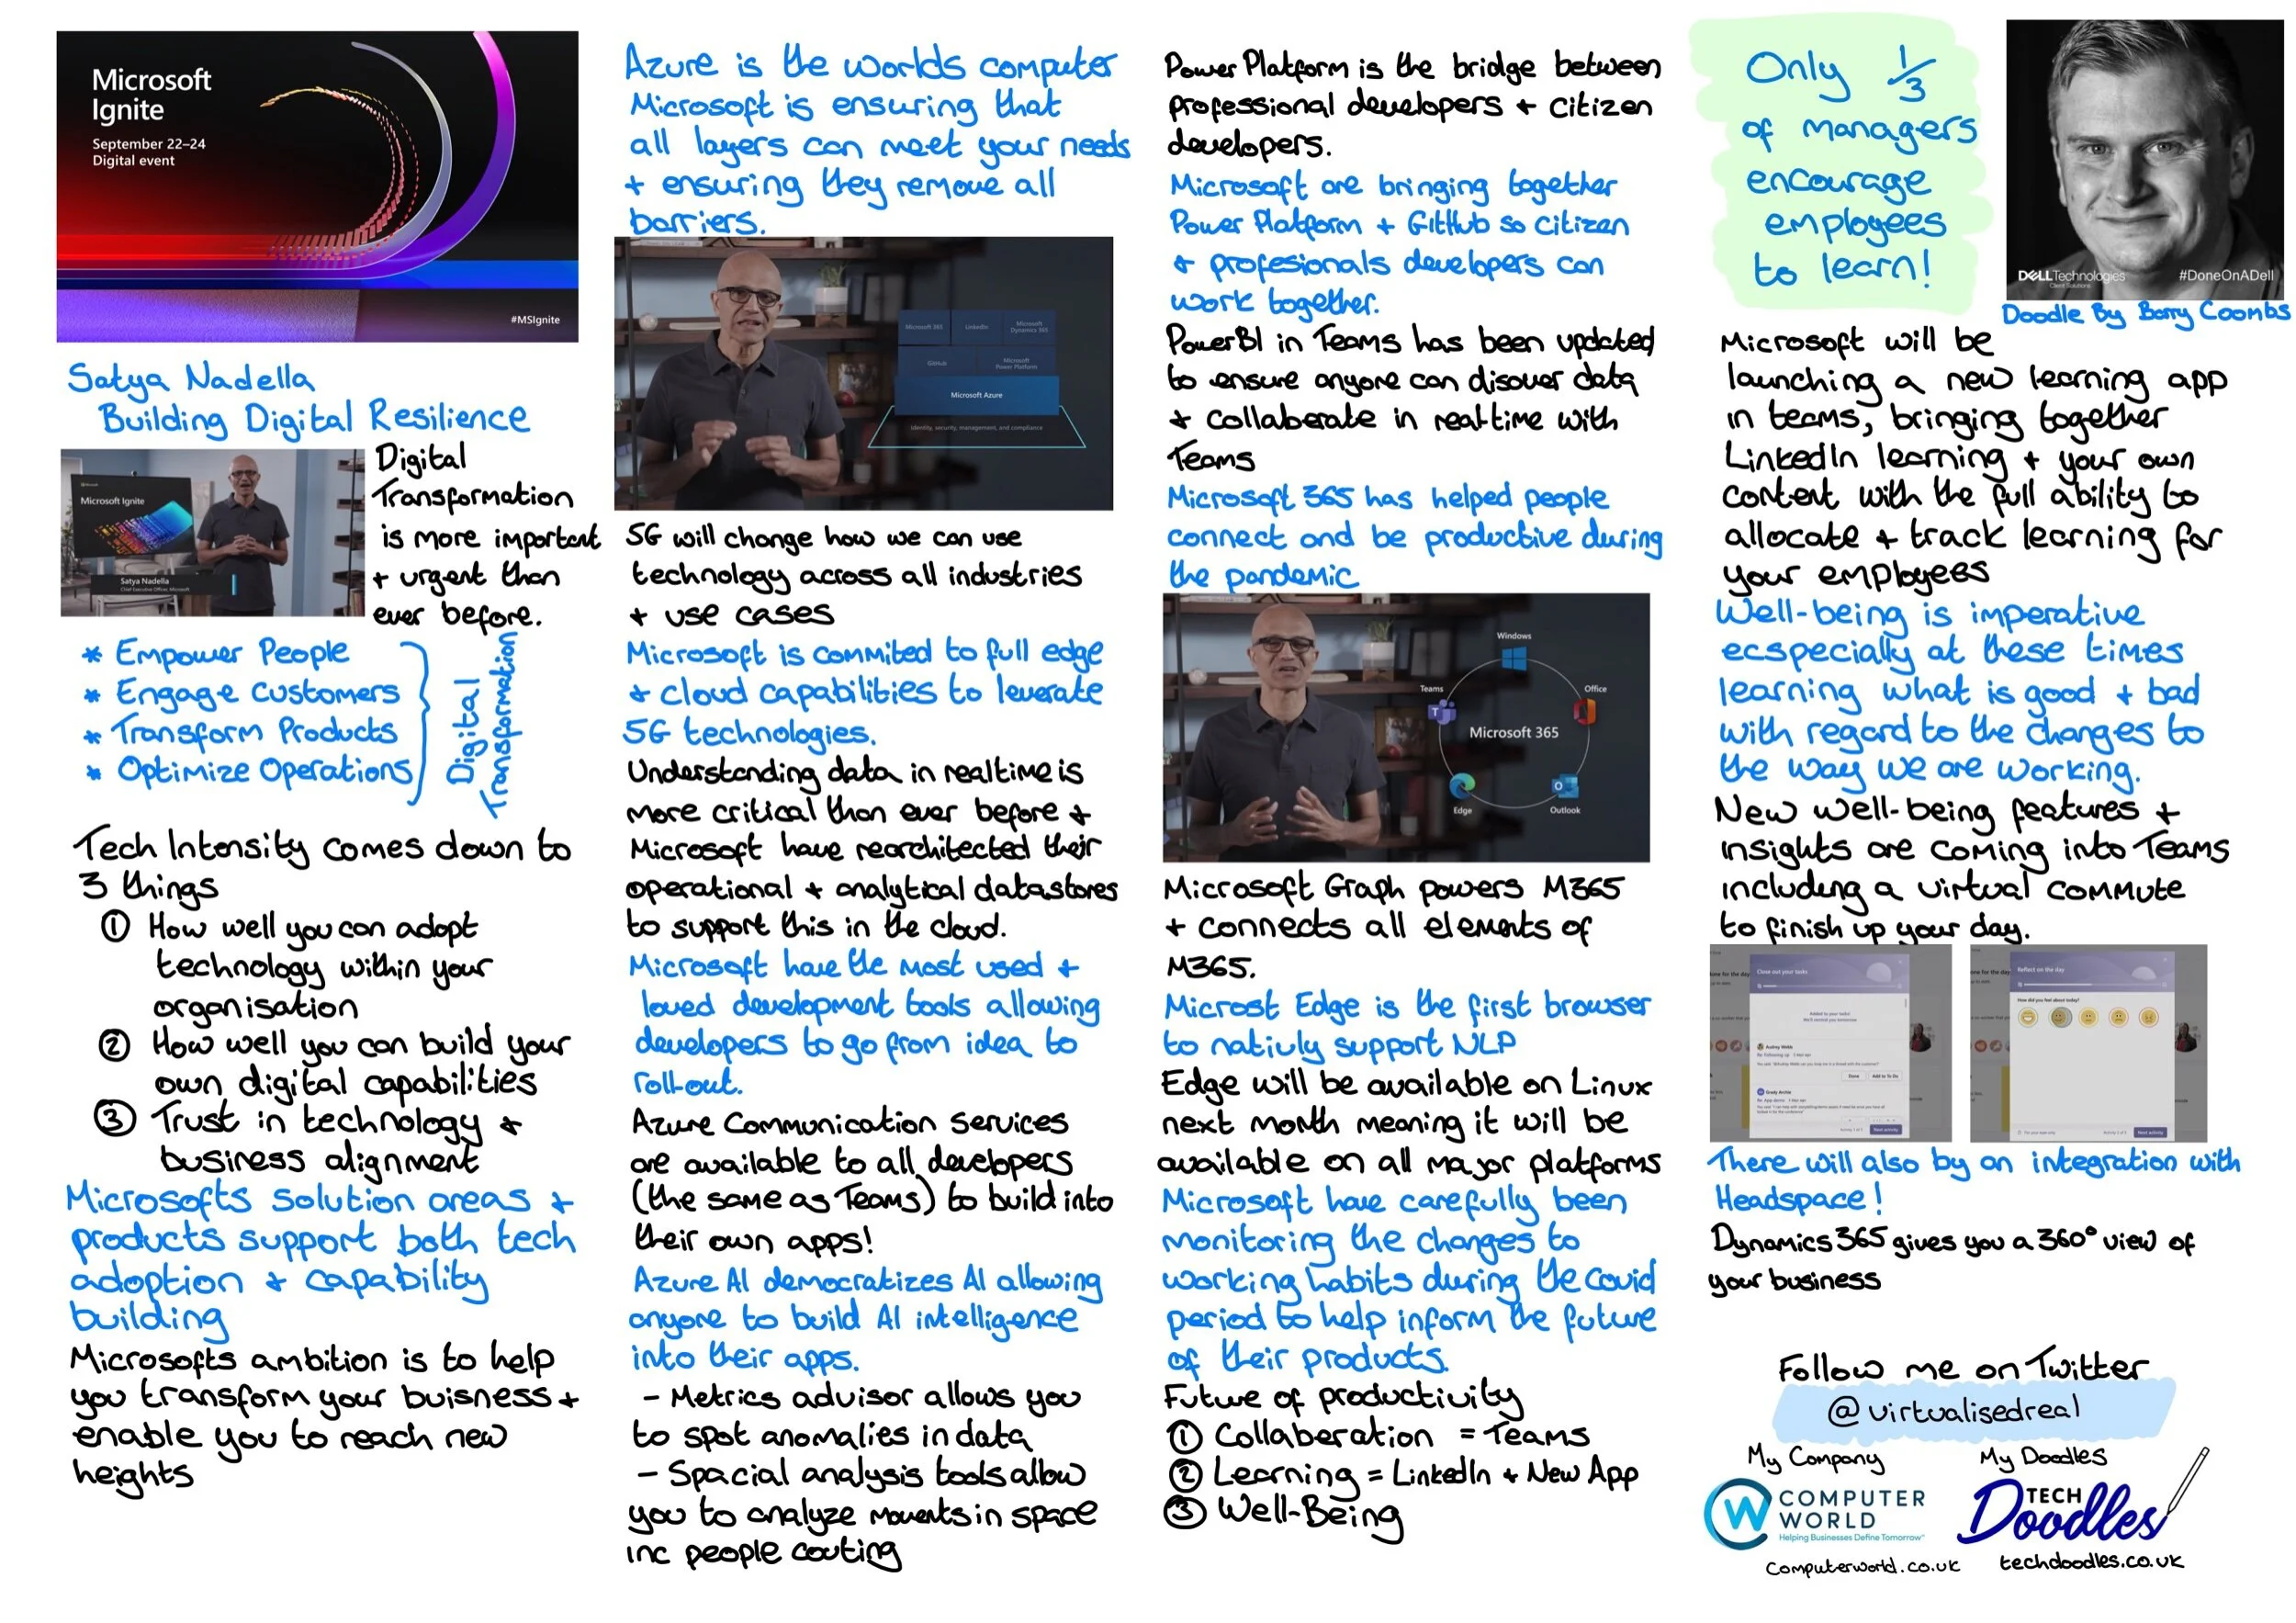 Microsoft
Ignite
September 22–24
Digital event
#MSIgnite
Satya Nadella
Building Digital Resilience
Microsoft
Microsoft Ignite
Satya Nadella
Chief Executive Officer, Microsoft
Digital
Transformation
is more important
+ urgent than
ever before.
* Empower People
* Engage Customers
* Transform Products
* Optimize Operations
Digital
Transformation
Tech Intensity comes down to
3 things
① How well you can adopt
technology within your
organisation
② How well you can build your
own digital capabilities
③ Trust in technology +
business alignment
Microsofts solution areas +
products support both tech
adoption + capability
building
Microsofts ambition is to help
you transform your buisness +
enable you to reach new
heights
Azure is the worlds computer
Microsoft is ensuring that
all layers can meet your needs
+ ensuring they remove all
barriers.
Microsoft 365
LinkedIn
Microsoft
Dynamics 365
GitHub
Microsoft
Power Platform
Microsoft Azure
Identity, security, management, and compliance
5G will change how we can use
technology across all industries
+ use cases
Microsoft is commited to full edge
+ cloud capabilities to leverate
5G technologies.
Understanding data in realtime is
more critical than ever before +
Microsoft have rearchitected their
operational + analytical datastores
to support this in the cloud.
Microsoft have the most used +
loved development tools allowing
developers to go from idea to
roll-out.
Azure Communication Services
are available to all developers
(the same as Teams) to build into
their own apps!
Azure AI democratizes AI allowing
anyone to build AI intelligence
into their apps.
- Metrics advisor allows you
to spot anomalies in data
- Spacial analysis tools allow
you to analyze movents in space
inc people couting
Power Platform is the bridge between
professional developers + citizen
developers.
Microsoft are bringing together
Power Platform + GitHub so citizen
+ profesionals developers can
work together.
PowerBI in Teams has been updated
to ensure anyone can disover data
+ collaborate in real-time with
Teams
Microsoft 365 has helped people
connect and be productive during
the pandemic
Windows
Teams
Office
Microsoft 365
Edge
Outlook
Microsoft Graph powers M365
+ connects all elements of
M365.
Microst Edge is the first browser
to nativly support NLP
Edge will be available on Linux
next month meaning it will be
available on all major platforms
Microsoft have carefully been
monitoring the changes to
working habits during the covid
period to help inform the future
of their products.
Future of productivity
① Collaberation = Teams
② Learning = LinkedIn + New App
③ Well-Being
Only 1/3
of managers
encourage
employees
to learn!
DELL Technologies
Client Solutions
#DoneOnADell
Doodle By Barry Coombs
Microsoft will be
launching a new learning app
in teams, bringing together
LinkedIn learning + your own
content with the full ability to
allocate + track learning for
your employees
Well-being is imperative
ecspecially at these times
learning what is good + bad
with regard to the changes to
the way we are working.
New well-being features +
insights are coming into Teams
including a virtual commute
to finish up your day.
Close out your tasks
Added to your tasks!
We'll remind you tomorrow
Audrey Webb
Done
Add to To Do
Grady Archie
Next activity
Reflect on the day
How did you feel about today?
Next activity
There will also by an integration with
Headspace!
Dynamics 365 gives you a 360° view of
your business
Follow me on Twitter
@virtualisedreal
My Company
COMPUTER
WORLD
Helping Businesses Define Tomorrow
computerworld.co.uk
My Doodles
TECH
Doodles
techdoodles.co.uk